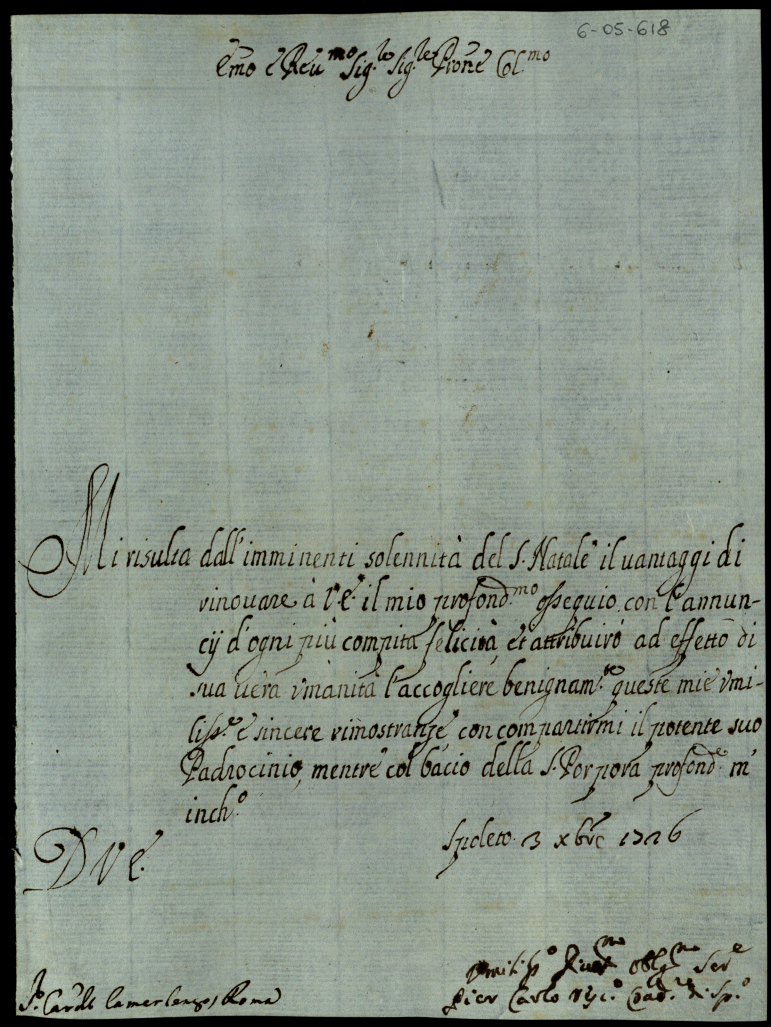 6-05-618
Emo e Reu.mo Sig.re Sig.re Prone Col.mo
Mi risulta dall'imminenti solennità del S. Natale il uantaggi di
rinouare à V.E. il mio profond.mo ossequio con l'annun-
cij d'ogni più compita felicità, et attribuirò ad effetto di
sua uera vmanità l'accogliere benignam.te queste mie vmi-
liss.e e sincere rimostranze con compartirmi il potente suo
Padrocinio, mentre col bacio della S. Porpora profond.e m'
inch.o
D V E.
Spoleto 3 xbre 1726
Vmiliss.o Diuot.mo Oblig.mo Ser.e
Pier Carlo
S.r Card.le Camerlengo, Roma